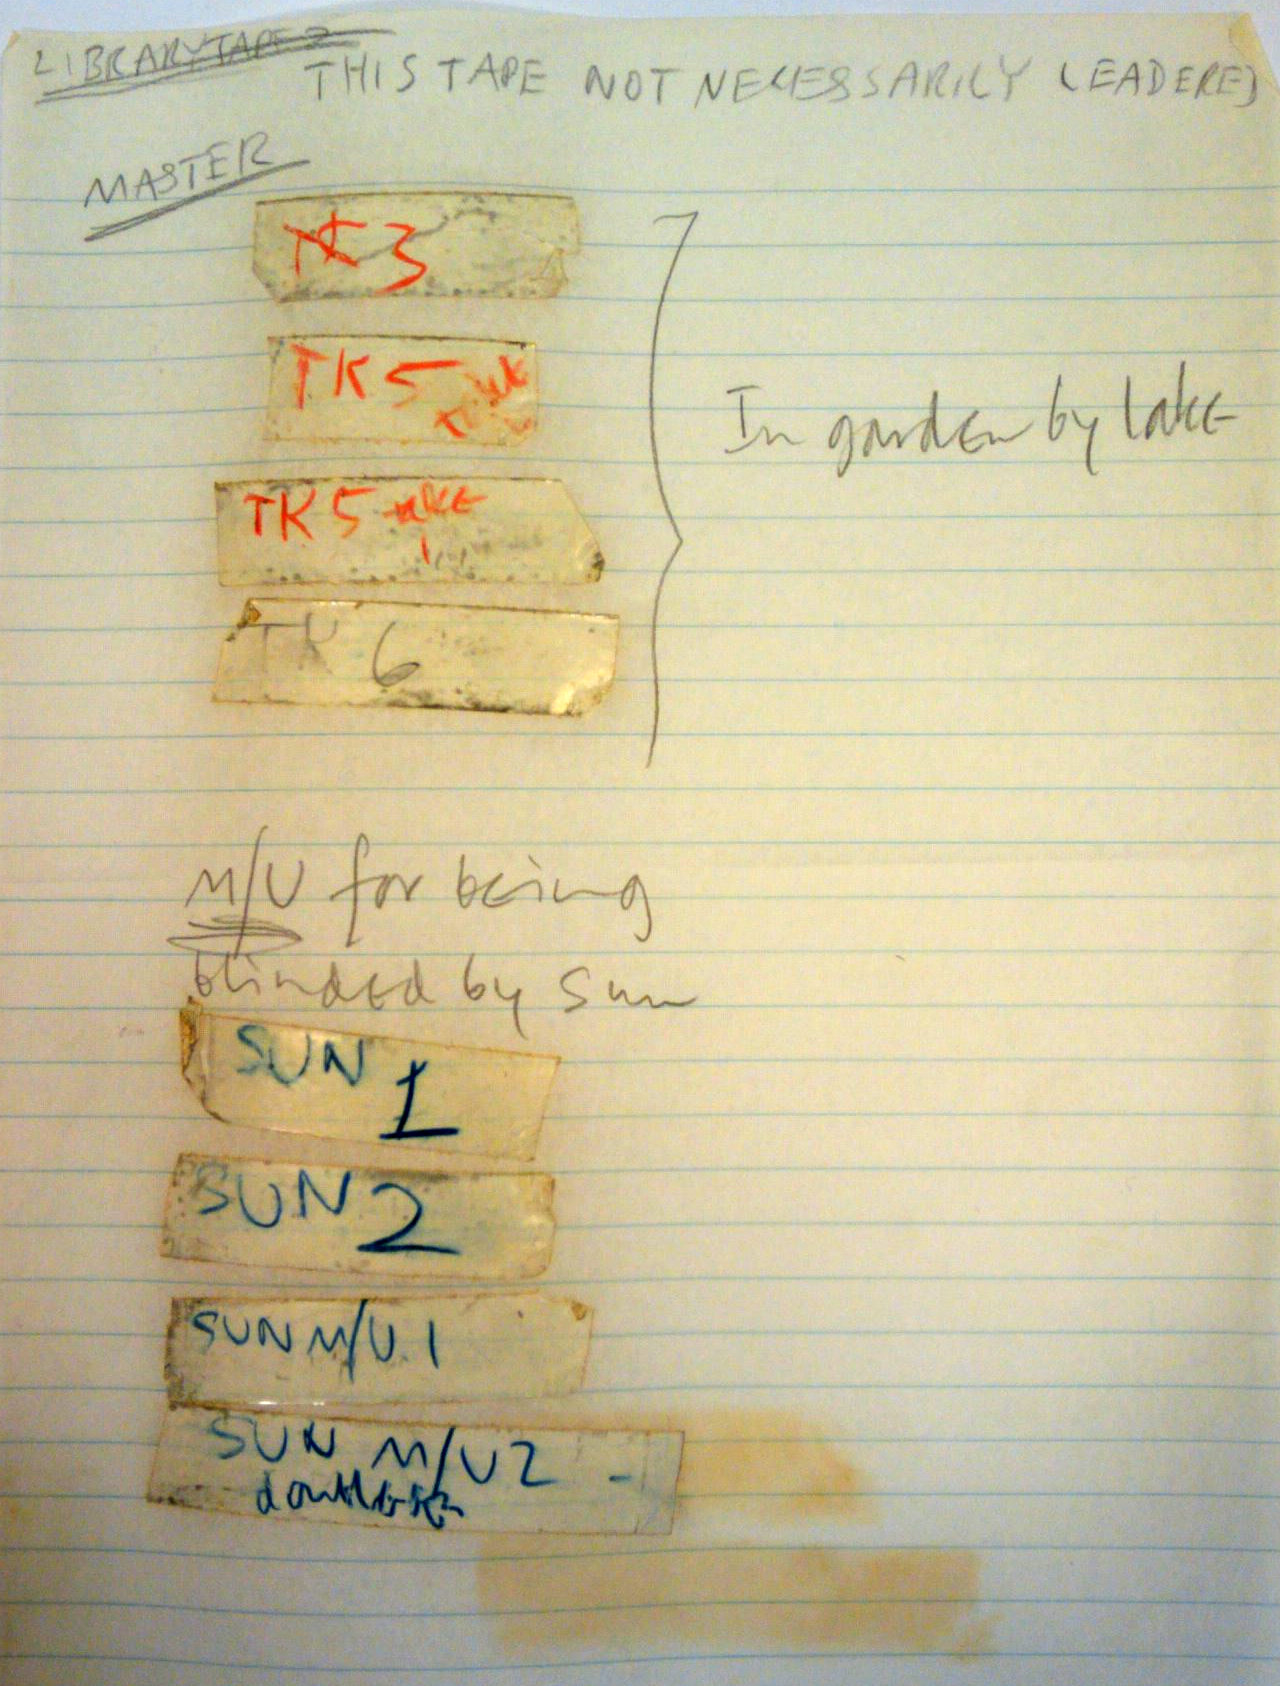 LIBRARY TAPE 2
THIS TAPE NOT NECESSARILY LEADERED
MASTER
TK 3
TK 5
TK 5 take
1
TK 6
In garden by lake
M/U for being
blinded by sun
SUN 1
SUN 2
SUN M/U 1
SUN M/U 2 -